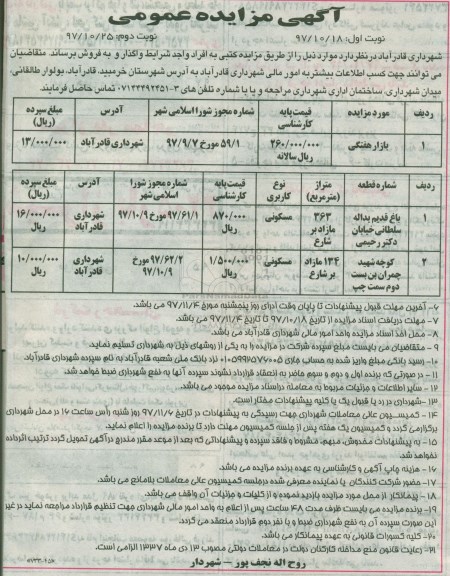 آگهی مزایده عمومی
نوبت اول: ۹۷/۱۰/۱۸ نوبت دوم: ۹۷/۱۰/۲۵
شهرداری قادرآباد در نظر دارد موارد ذیل را از طریق مزایده کتبی به افراد واجد شرایط واگذار و به فروش برساند. متقاضیان
می توانند جهت کسب اطلاعات بیشتر به امور مالی شهرداری قادرآباد به آدرس شهرستان خرمبید، قادرآباد، بولوار طالقانی،
میدان شهرداری، ساختمان اداری شهرداری مراجعه و یا با شماره تلفن های ۳-۰۷۱۴۴۴۹۲۴۵۱ تماس حاصل فرمایند.
ردیف مورد مزایده قیمت پایه کارشناسی شماره مجوز شورا اسلامی شهر آدرس مبلغ سپرده (ریال)
۱ بازار هفتگی ۲۶۰/۰۰۰/۰۰۰ ریال سالانه ۵۹/۱ مورخ ۹۷/۹/۷ شهرداری قادرآباد ۱۳/۰۰۰/۰۰۰
ردیف شماره قطعه متراژ (مترمربع) نوع کاربری قیمت پایه کارشناسی شماره مجوز شورا اسلامی شهر آدرس مبلغ سپرده (ریال)
۱ باغ قدیم یداله سلطانی خیابان دکتر رحیمی ۳۶۳ مازاد بر شارع مسکونی ۸۷۰/۰۰۰ ریال ۹۷/۶۱/۱ مورخ ۹۷/۱۰/۹ شهرداری قادرآباد ۱۶/۰۰۰/۰۰۰ ریال
۲ کوچه شهید چمران بن بست دوم سمت چپ ۱۳۴ مازاد بر شارع مسکونی ۱/۵۰۰/۰۰۰ ریال ۹۷/۶۲/۲ مورخ ۹۷/۱۰/۹ شهرداری قادرآباد ۱۰/۰۰۰/۰۰۰ ریال
۶- آخرین مهلت قبول پیشنهادات تا پایان وقت اداری روز پنجشنبه مورخ ۹۷/۱۱/۴ می باشد.
۷- مهلت دریافت اسناد مزایده از تاریخ ۹۷/۱۰/۱۸ تا تاریخ ۹۷/۱۱/۴ می باشد.
۸- محل اخذ اسناد مزایده واحد امور مالی شهرداری قادرآباد می باشد.
۹- متقاضیان می بایست مبلغ سپرده شرکت در مزایده را به یکی از روشهای ذیل به شهرداری تسلیم نمایند.
۱۰- رسید بانکی مبلغ واریز شده به حساب جاری ۰۱۰۵۹۹۱۵۷۶۰۰۵ نزد بانک ملی شعبه قادرآباد به نام سپرده شهرداری قادرآباد
۱۱- در صورتی که برنده اول و دوم و سوم حاضر به انعقاد قرارداد نشوند سپرده آنها به نفع شهرداری ضبط خواهد شد.
۱۲- سایر اطلاعات و جزئیات مربوط به معامله در اسناد مزایده موجود می باشد.
۱۳- شهرداری در رد یا قبول یک یا کلیه پیشنهادات مختار است.
۱۴- کمیسیون عالی معاملات شهرداری جهت رسیدگی به پیشنهادات در تاریخ ۹۷/۱۱/۶ روز شنبه رأس ساعت ۱۶ در محل شهرداری
برگزار می گردد و کمیسیون یک هفته پس از جلسه کمیسیون مهلت دارد تا برنده مزایده را اعلام نماید.
۱۵- به پیشنهادات مخدوش، مبهم، مشروط و فاقد سپرده و پیشنهاداتی که بعد از موعد مقرر مندرج در آگهی تحویل گردد ترتیب اثر داده
نخواهد شد.
۱۶- هزینه چاپ آگهی و کارشناسی به عهده برنده مزایده می باشد.
۱۷- حضور شرکت کنندگان یا نماینده معرفی شده در جلسه کمیسیون عالی معاملات بلامانع می باشد.
۱۸- پیمانکار از محل مورد مزایده بازدید نموده و از کلیات و جزئیات آن واقف می باشد.
۱۹- برنده مزایده می بایست ظرف مدت ۴۸ ساعت پس از اعلام به واحد امور مالی شهرداری جهت تنظیم قرارداد مراجعه نماید در غیر
این صورت سپرده آن به نفع شهرداری ضبط و با نفر دوم قرارداد منعقد می گردد.
۲۰- کلیه کسورات قانونی به عهده پیمانکار می باشد.
۲۱- رعایت قانون منع مداخله کارکنان دولت در معاملات دولتی مصوب ۱۳ دی ماه ۱۳۳۷ الزامی است.
روح اله نجف پور – شهردار